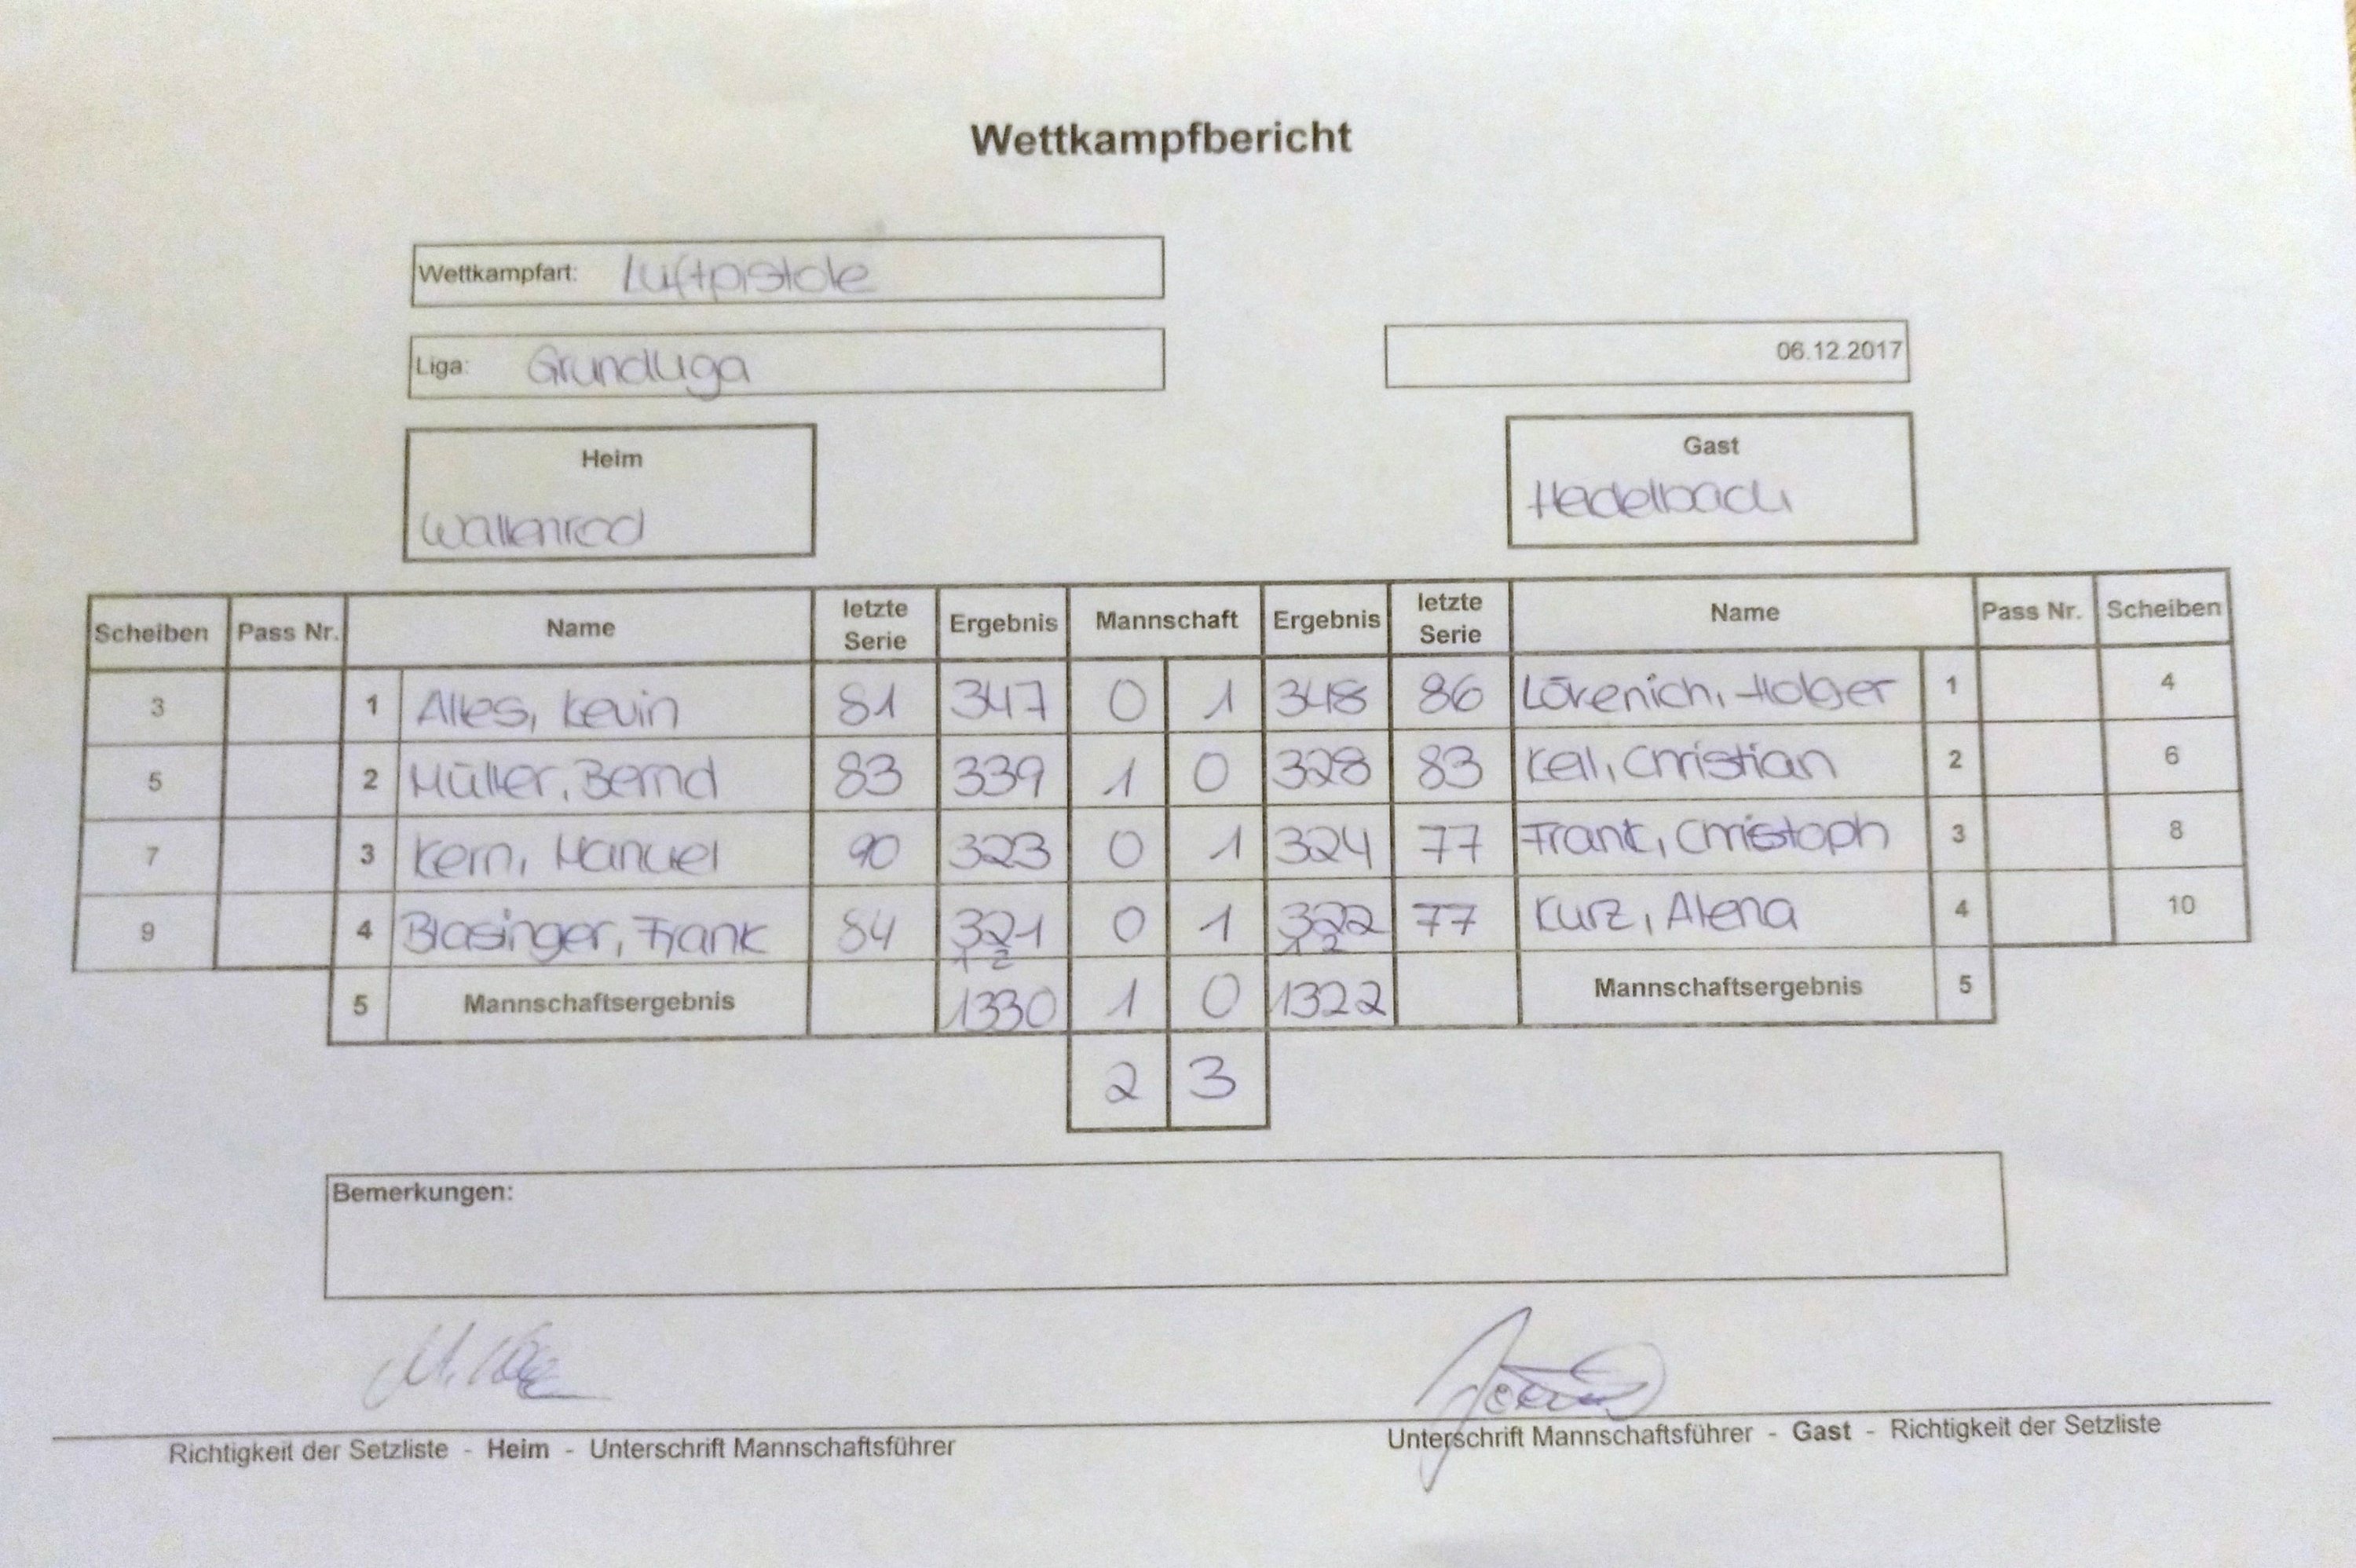 Wettkampfbericht
Wettkampfart: Luftpistole
Liga: Grundliga
06.12.2017
Heim
Wallenrod
Gast
Hedelbach
Scheiben Pass Nr. Name letzte Serie Ergebnis Mannschaft Ergebnis letzte Serie Name Pass Nr. Scheiben
3 1 Alles, Kevin 81 347 0 1 348 86 Lörenich, Holger 1 4
5 2 Müller, Bernd 83 339 1 0 328 83 Keil, Christian 2 6
7 3 Kern, Manuel 90 323 0 1 324 77 Frank, Christoph 3 8
9 4 Blasinger, Frank 84 321 0 1 322 77 Kurz, Alena 4 10
1 2 1 2
5 Mannschaftsergebnis 1330 1 0 1322 Mannschaftsergebnis 5
2 3
Bemerkungen:
Richtigkeit der Setzliste - Heim - Unterschrift Mannschaftsführer
Unterschrift Mannschaftsführer - Gast - Richtigkeit der Setzliste